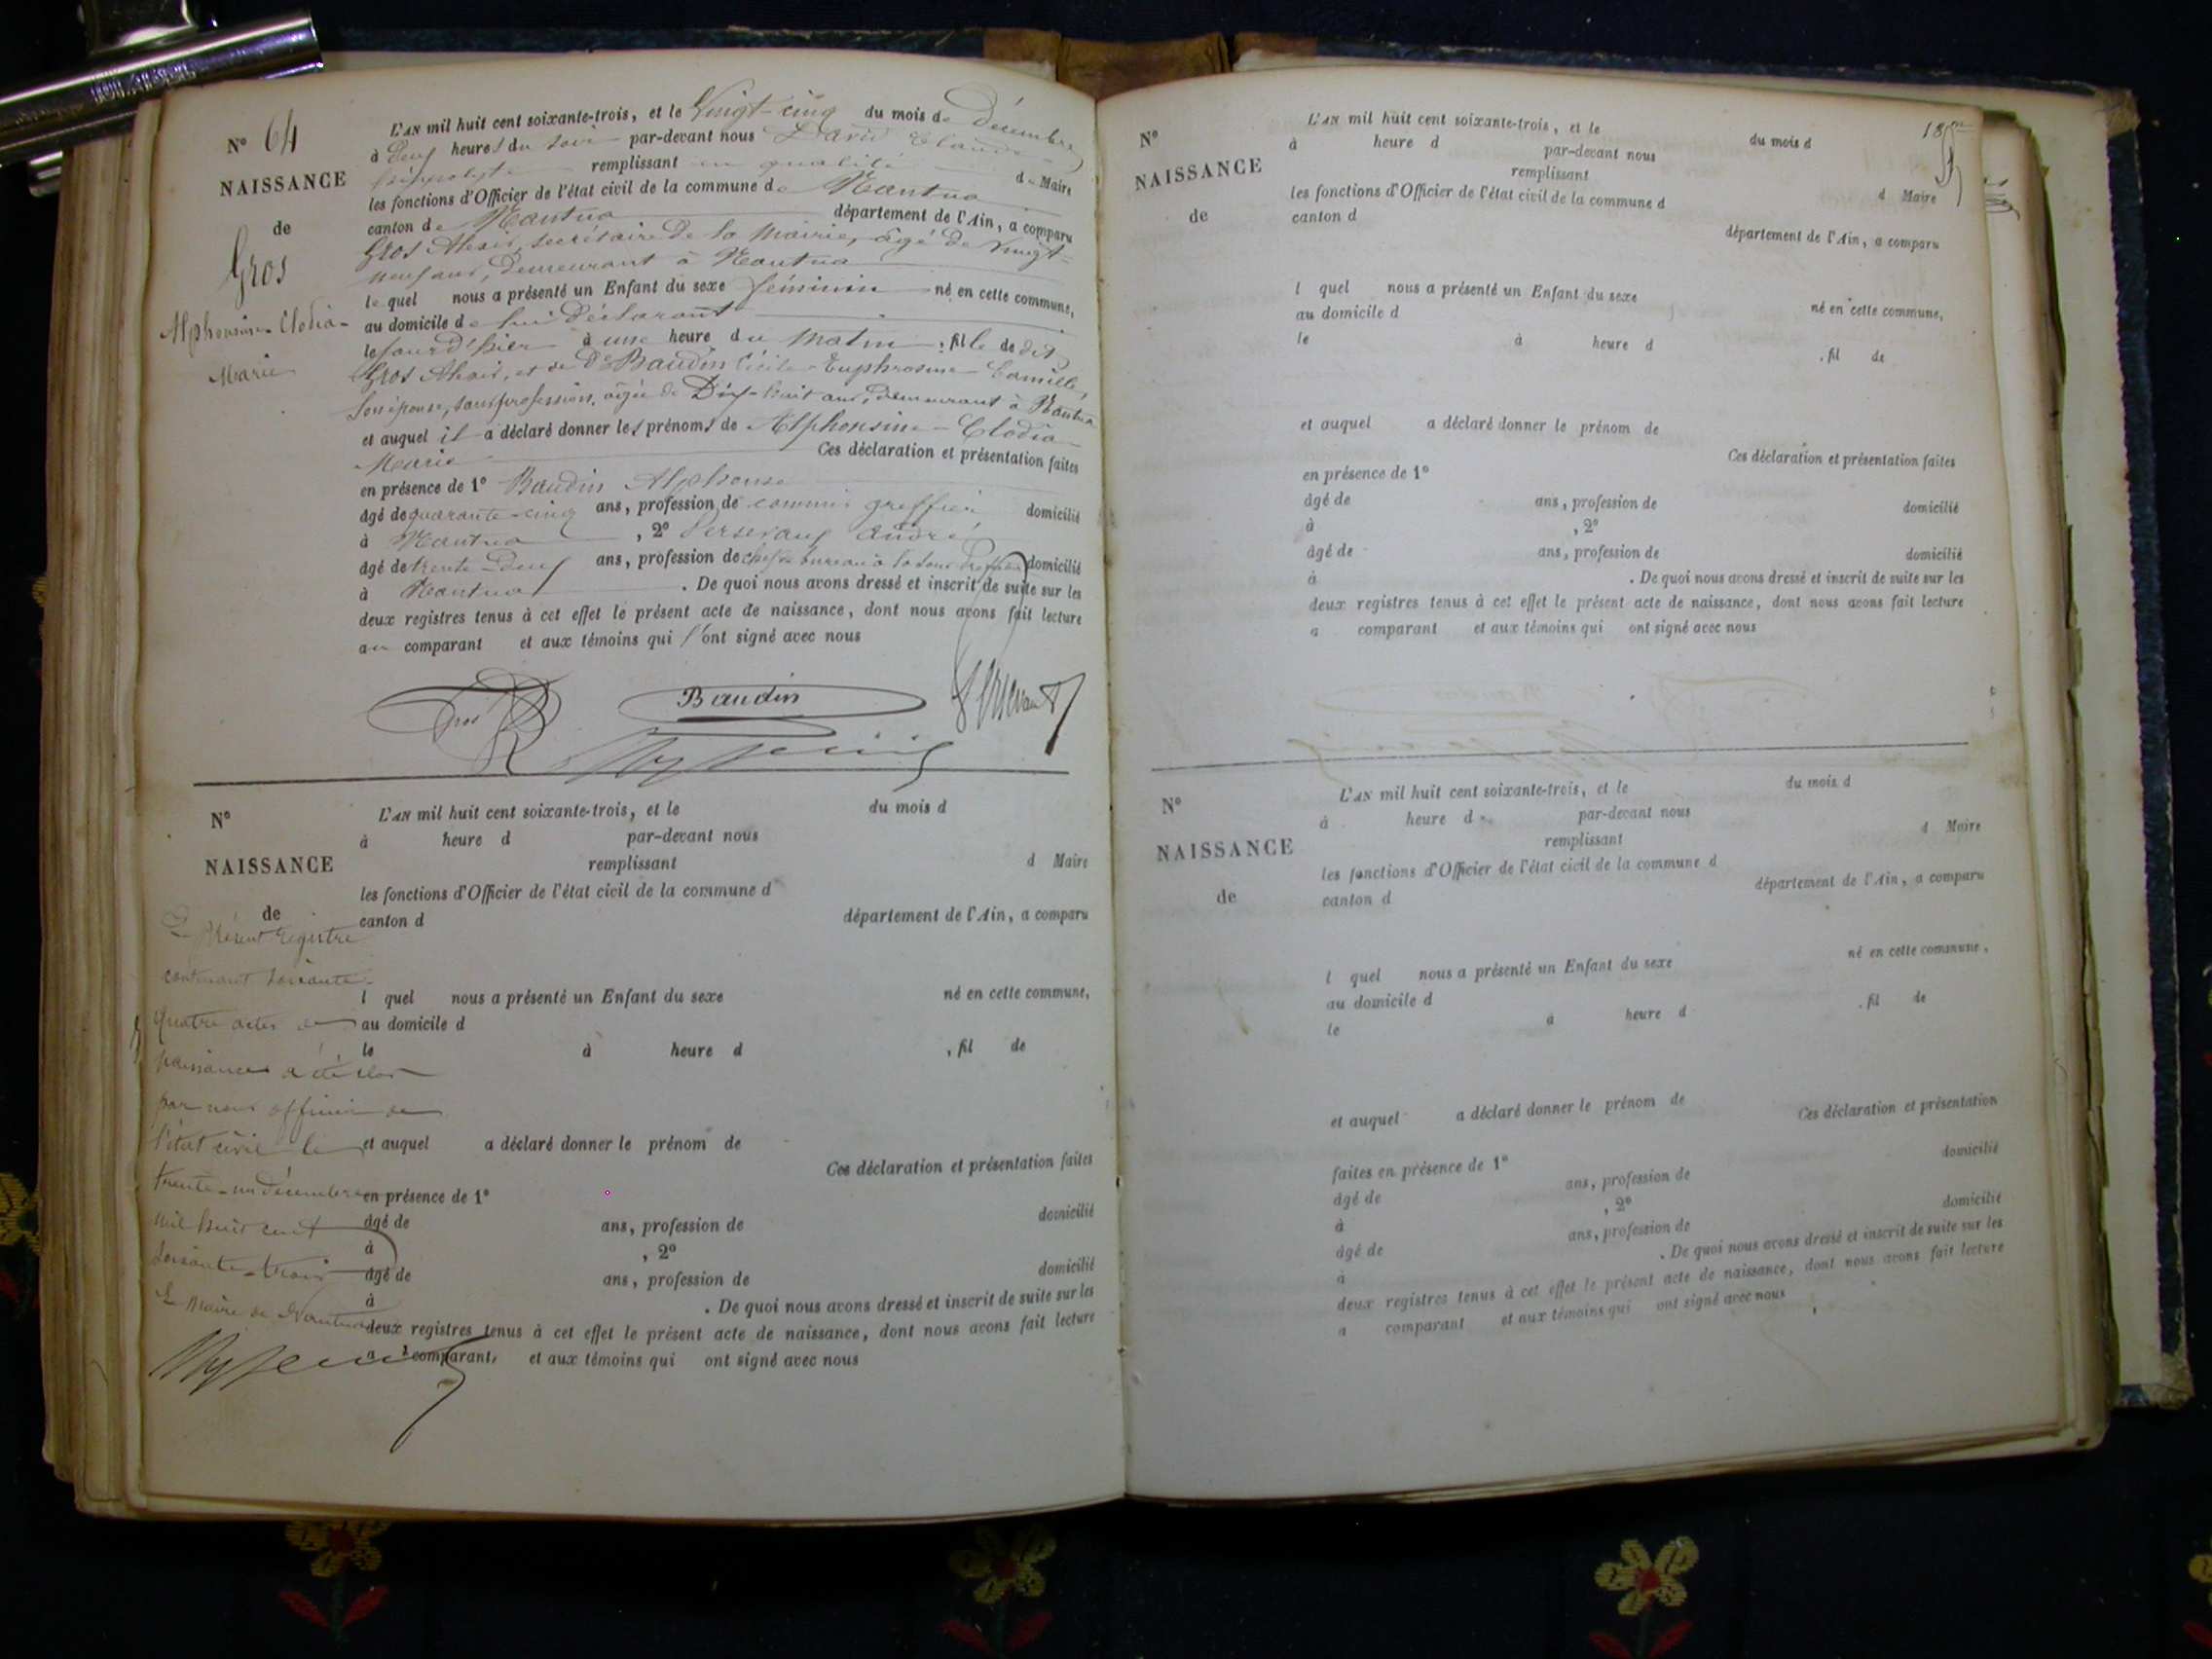 N° 64
NAISSANCE
de
Gros
Alphonsine-Clodia-
Marie
L'AN mil huit cent soixante-trois, et le Vingt-cinq du mois de Décembre
à Deux heures du soir par-devant nous David Claude
hippolyte remplissant en qualité d- Maire
les fonctions d'Officier de l'état civil de la commune de Nantua
canton de Nantua département de l'Ain, a comparu
Gros Alexis, secrétaire de la Mairie, âgé de Vingt-
neuf ans, demeurant à Nantua
lequel nous a présenté un Enfant du sexe féminin né en cette commune,
au domicile de lui Déclarant
le jour d'hier à une heure du matin, fille de dit
Gros Alexis, et de De Baudin Cécile-Euphrosine Camille,
son épouse, sans profession, âgée de Dix-huit ans, demeurant à Nantua
et auquel il a déclaré donner les prénoms de Alphonsine-Clodia-
Marie Ces déclaration et présentation faites
en présence de 1° Baudin Alphonse
âgé de quarante-cinq ans, profession de commis greffier domicilié
à Nantua, 2° Persevaux André
âgé de trente-Deux ans, profession de chef de bureau à la sous Préfecture domicilié
à Nantua. De quoi nous avons dressé et inscrit de suite sur les
deux registres tenus à cet effet le présent acte de naissance, dont nous avons fait lecture
au comparant et aux témoins qui l'ont signé avec nous
Gros Baudin
N°
NAISSANCE
de
L'AN mil huit cent soixante-trois, et le du mois d
à heure d par-devant nous
remplissant d Maire
les fonctions d'Officier de l'état civil de la commune d
canton d département de l'Ain, a comparu
l quel nous a présenté un Enfant du sexe né en cette commune,
au domicile d
le à heure d , fil de
et auquel a déclaré donner le prénom de
Ces déclaration et présentation faites
en présence de 1°
âgé de ans, profession de domicilié
à , 2°
âgé de ans, profession de domicilié
à . De quoi nous avons dressé et inscrit de suite sur les
deux registres tenus à cet effet le présent acte de naissance, dont nous avons fait lecture
a comparant, et aux témoins qui ont signé avec nous
Le présent registre
contenant soixante-
quatre actes de
naissances a été clos
par nous officier de
l'état civil le
trente-un décembre
mil huit cent
soixante-trois
Le Maire de Nantua
N°
NAISSANCE
de
L'AN mil huit cent soixante-trois, et le du mois d
à heure d par-devant nous
remplissant d Maire
les fonctions d'Officier de l'état civil de la commune d
canton d département de l'Ain, a comparu
l quel nous a présenté un Enfant du sexe né en cette commune,
au domicile d
le à heure d , fil de
et auquel a déclaré donner le prénom de
Ces déclaration et présentation faites
en présence de 1°
âgé de ans, profession de domicilié
à , 2°
âgé de ans, profession de domicilié
à . De quoi nous avons dressé et inscrit de suite sur les
deux registres tenus à cet effet le présent acte de naissance, dont nous avons fait lecture
a comparant et aux témoins qui ont signé avec nous
N°
NAISSANCE
de
L'AN mil huit cent soixante-trois, et le du mois d
à heure d par-devant nous
remplissant d Maire
les fonctions d'Officier de l'état civil de la commune d
canton d département de l'Ain, a comparu
l quel nous a présenté un Enfant du sexe né en cette commune,
au domicile d
le à heure d , fil de
et auquel a déclaré donner le prénom de
Ces déclaration et présentation
faites en présence de 1°
âgé de ans, profession de domicilié
à , 2°
âgé de ans, profession de domicilié
à . De quoi nous avons dressé et inscrit de suite sur les
deux registres tenus à cet effet le présent acte de naissance, dont nous avons fait lecture
a comparant et aux témoins qui ont signé avec nous